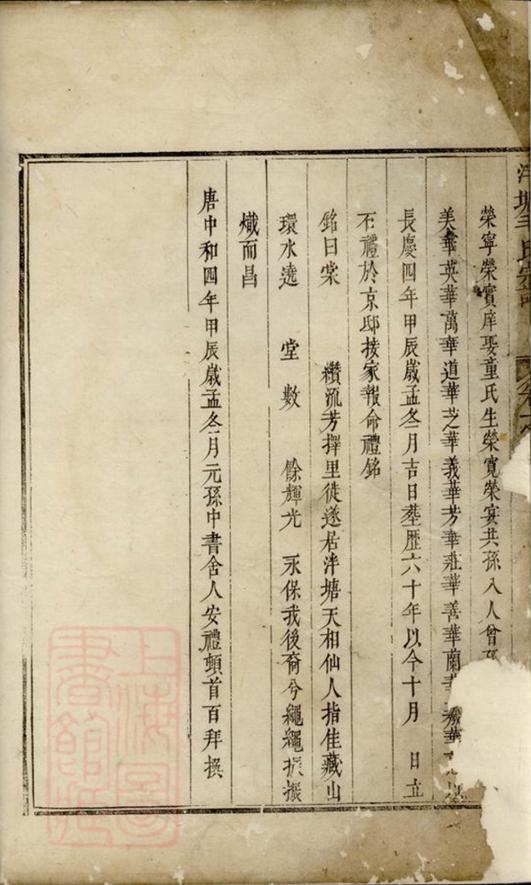 榮寧榮實庠娶童氏生榮寬榮宴共孫八人曾孫
美華英華萬華道華芝華義華芳華莊華善華蘭華
長慶四年甲辰歲孟冬月吉日塟歷六十年以今十月 日立
石禮於京邸接家報命禮銘
銘曰棠 纘流芳擇里徙遂居泮塘天相仙人指佳藏山
環水遶 堂數 餘輝光 永保我後裔兮繩繩振振
熾而昌
唐中和四年甲辰歲孟冬月元孫中書舍人安禮頓首百拜撰
上海圖書館藏